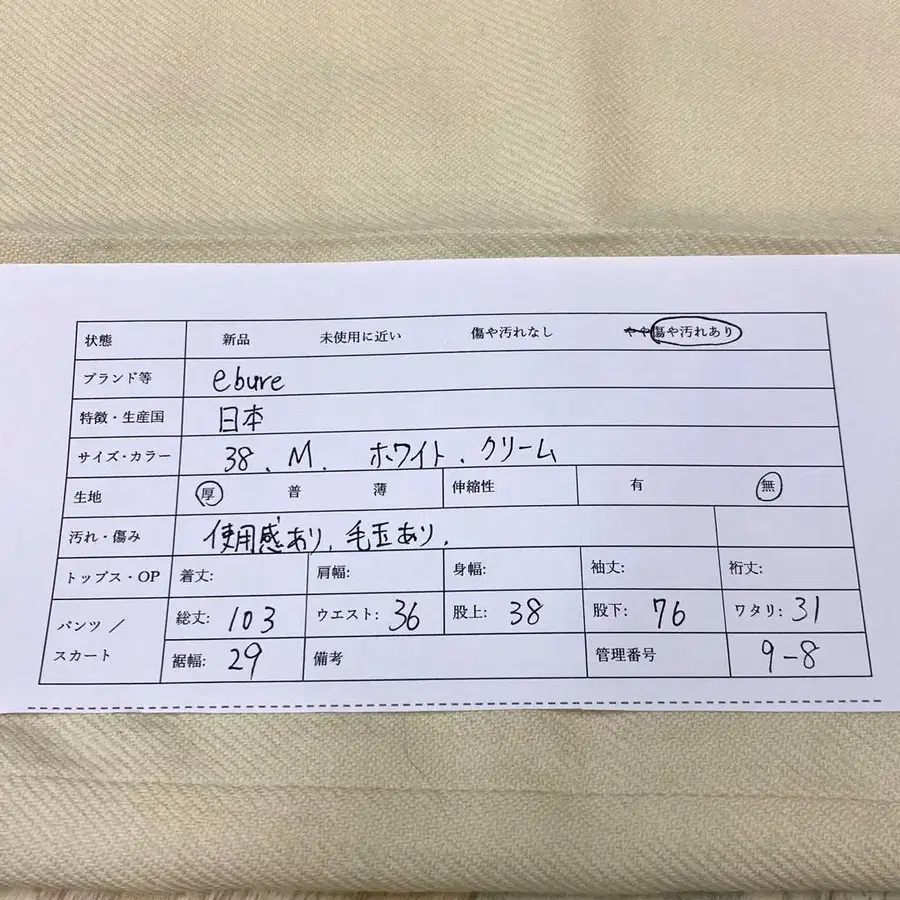 状態 新品 未使用に近い 傷や汚れなし やや傷や汚れあり
ブランド等 ebure
特徴・生産国 日本
サイズ・カラー 38、M、 ホワイト、クリーム
生地 厚 普 薄 伸縮性 有 無
汚れ・傷み 使用感あり、毛玉あり、
トップス・OP 着丈: 肩幅: 身幅: 袖丈: 裄丈:
パンツ/スカート 総丈: 103 ウエスト: 36 股上: 38 股下: 76 ワタリ: 31
裾幅: 29 備考 管理番号 9-8